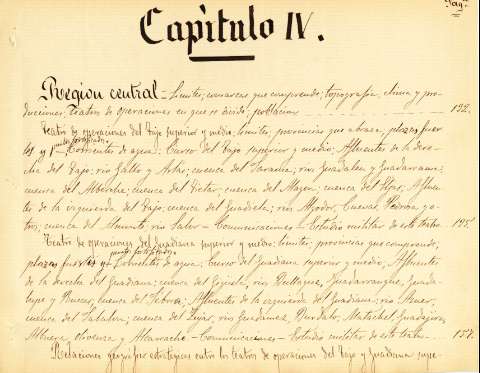 Pag.
Capítulo IV.
Región central - Límites; comarcas que comprende; topografía, clima y pro-
ducciones; Teatros de operaciones en que se divide; poblacion 192.
Teatro de operaciones del Tajo superior y medio: limites, provincias que abraza, plazas fuer-
tes y puntos fortificados - Corrientes de agua: Curso del Tajo superior y medio; Afluentes de la dere-
cha del Tajo: rio Gallo y Arlas; cuenca del Jarama; rios Guadalen y Guadarrama;
cuenca del Alberche; cuenca del Tietar; cuenca del Alagon; cuenca del Eljas; Afluen-
tes de la izquierda del Tajo: cuenca del Guadiela; rios Algodor, Cuevas, Pedroso, ya-
cuenca del Almonte, rio Salor - Comunicaciones - Estudio militar de este teatro 195.
Teatro de operaciones del Guadiana superior y medio: limites; provincias que comprende,
plazas fuertes y puntos fortificados - Corrientes de agua: Curso del Guadiana superior y medio; Afluentes
de la derecha del Guadiana: cuenca del Gigüela, rios Bullaque, Guadarranque, Guada-
lupe y Ruecas, cuenca del Jabron; Afluentes de la izquierda del Guadiana: rio Azuer,
cuenca del Jabalon; cuenca del Zujar, rios Guadamez, Burdalo, Matachel, Guadajira,
Albuera, Olivenza y Alcarrache - Comunicaciones - Estudio militar de este teatro 157.
Relaciones geografico estrategicas entre los teatros de operaciones del Tajo y Guadiana supe-